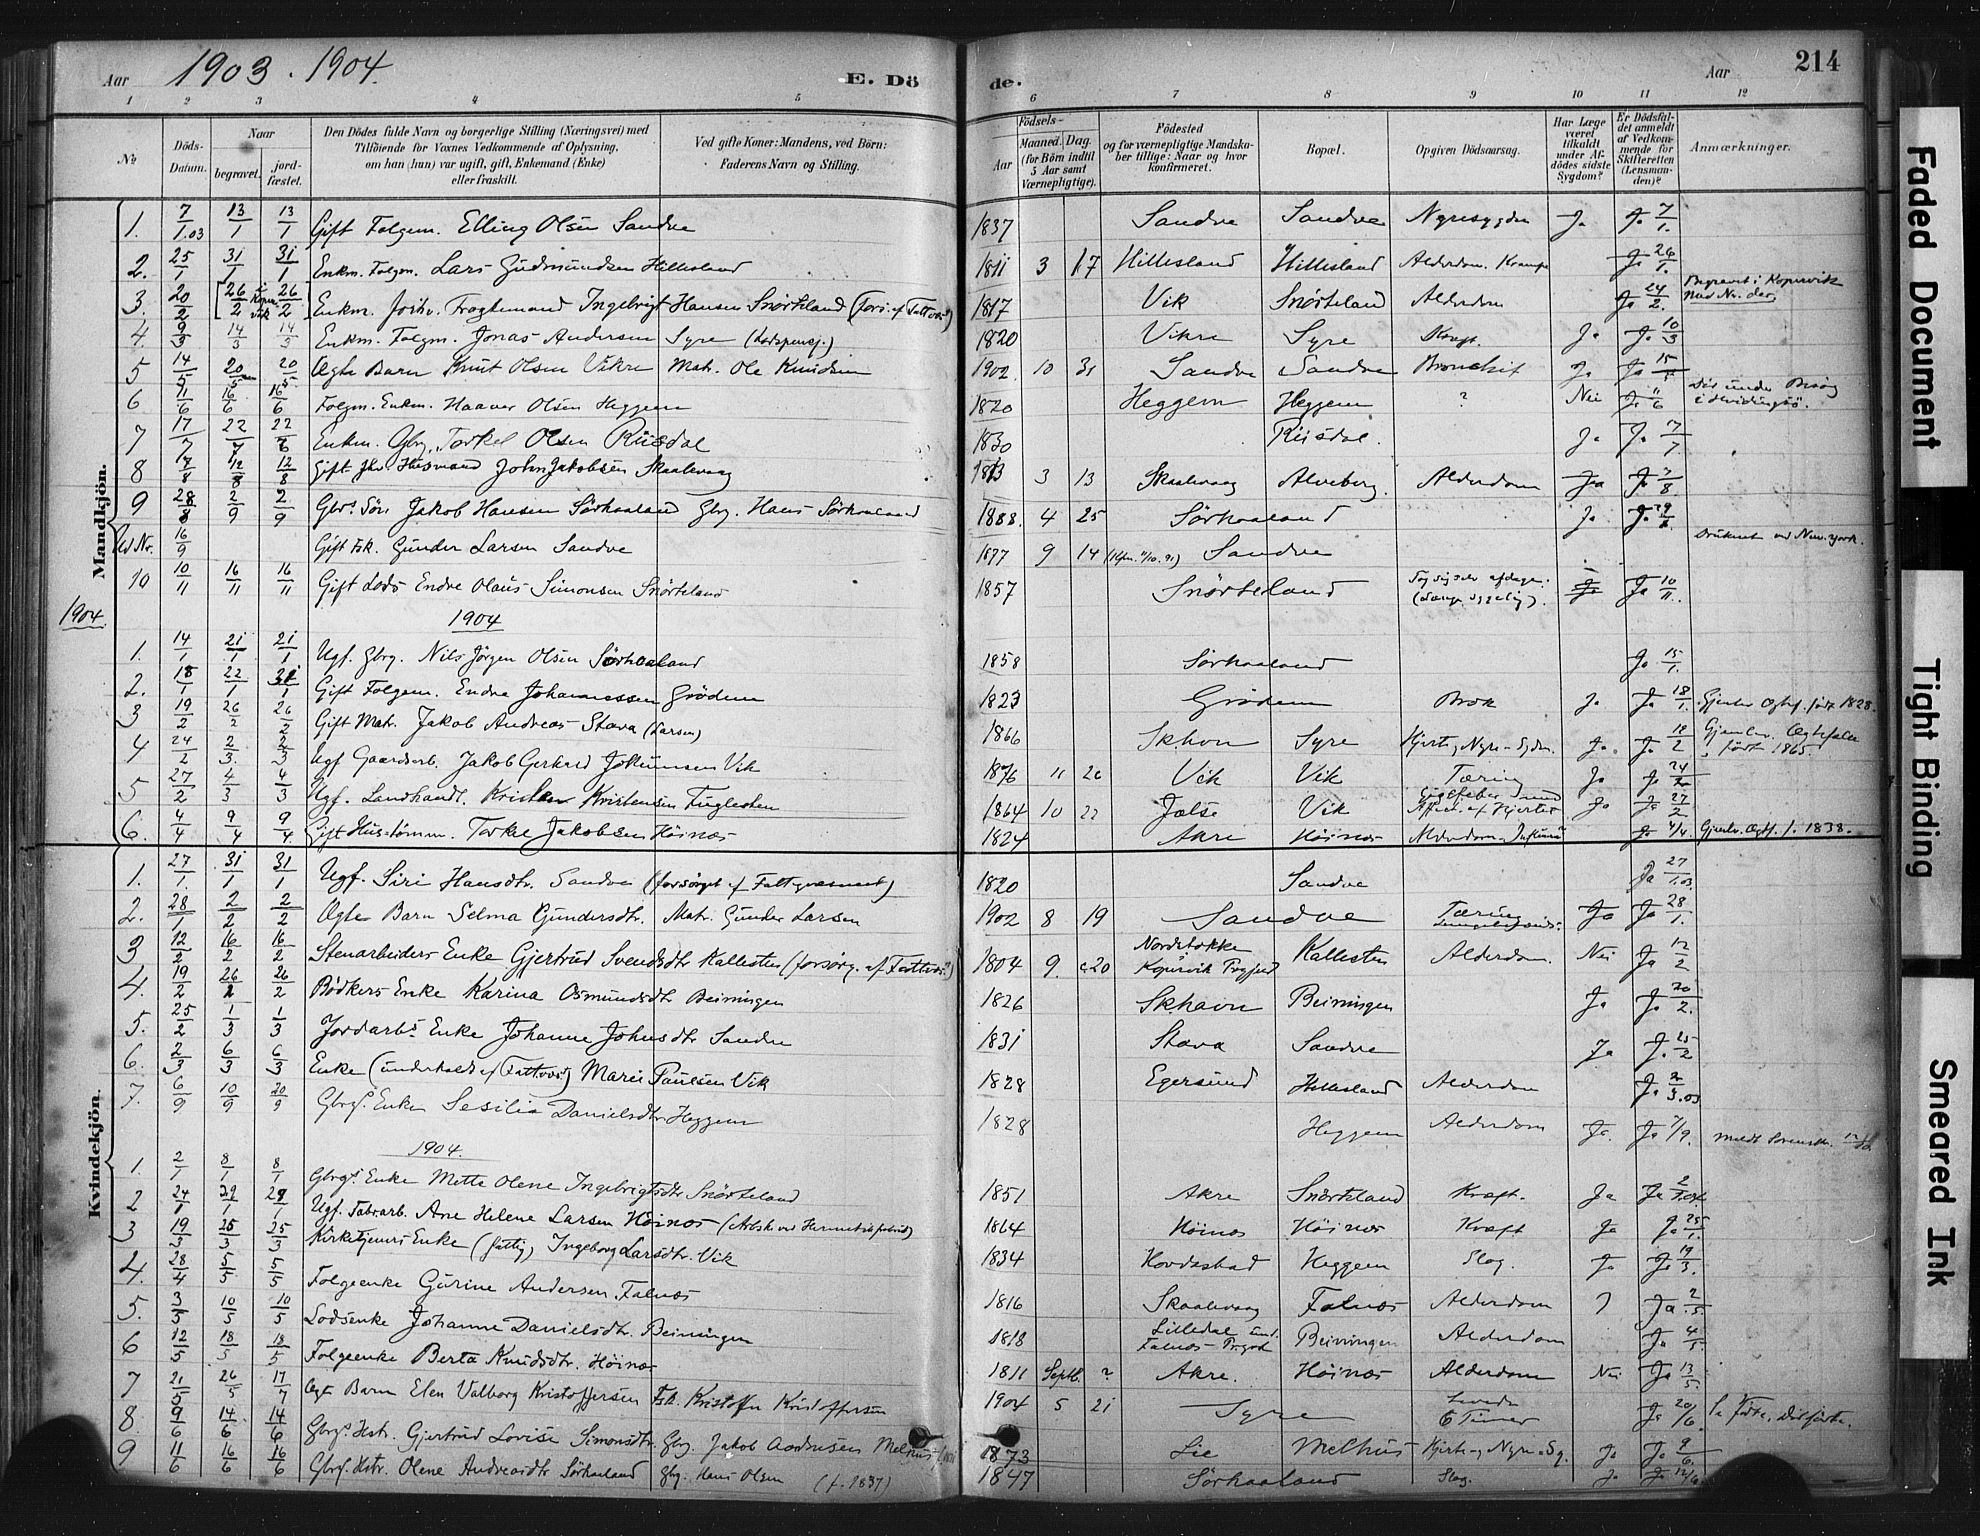 Aar 1903. 1904. E. Dö
de. Aar 214
1 2 3 4 5 6 7 8 9 10 11 12
No
Döds-Datum.
Naar
begravet.
jordfæstet.
Den Dödes fulde Navn og borgerlige Stilling (Næringsvei) med
Tilföiende for Voxnes Vedkommende af Oplysning,
om han (hun) var ugift, gift, Enkemand (Enke)
eller fraskilt.
Ved gifte Koner: Mandens, ved Börn:
Faderens Navn og Stilling.
Födsels-
Aar
Maaned. Dag.
(for Börn indtil
5 Aar samt
Værnepligtige).
Födested
og for værnepligtige Mandskaber tillige: Naar og hvor
konfirmeret.
Bopæl.
Opgiven Dödsaarsag.
Har Læge
været
tilkaldt
under Afdödes sidste
Sygdom?
Er Dödsfaldet anmeldt
af Vedkommende for
Skifteretten
(Lensmanden)?
Anmærkninger.
Mandkjön.
1. 7/1.03 13/1 13/1 Gift Folgem. Elling Olsen Sandve 1837 Sandve Sandve Nyresygdm Ja Ja 7/1.
2. 25/1 31/1 31/1 Enkm. Folgm. Lars Gudmundsen Hillesland 1811 3 17 Hillesland Hillesland Alderdom. Krampe Ja 26/1.
3. 20/2 [26/2 i Kopervik 26/2] Enkm. Fragtemand Ingebrigt Hansen Snörteland (fors. af Fattvæs.) 1817 Vik Snörteland Alderdom Ja 24/2. Begravet i Kopervik
4. 9/3 14/3 14/3 Enkm. Folgm. Jonas Andersen Syre (Lodspensj.) 1820 Vikre Syre Kræft. Ja Ja 10/3
5 14/5 20/5 20/5 Ægte Barn Knut Olsen Vikre Matr. Ole Knudsen 1902. 10 31 Sandve Sandve Bronchit Ja Ja 15/5
6 11/6 16/6 16/6 Folgm. Enkm. Haaver Olsen Heggem 1820 Heggem Heggem ? Nei Ja 11/6 Död under Besög
7 17/7 22/7 Enkm. Gbrg. Torkel Olsen Riisdal 1830 Riisdal. Ja Ja 17/7
8 7/8 12/8 12/8 Gift Husmand John Jakobsen Skaalevaag 1813 3 13 Skaalevaag Alveberg. Alderdom Ja Ja 7/8
9 28/8 2/9 2/9 Gbrs. Sön Jakob Hansen Sörhaaland Gbrg. Hans Sörhaaland 1888. 4 25 Sörhaaland Ja Ja
Ud Nr. 16/9 Gift Fsk. Gunder Larsen Sandve 1877 9 14 Sandve Druknet ved New-York.
10 10/11 16/11 16/11 Gift Lods Endre Olaus Simonsen Snörteland 1857 Snörteland Tog sig selv afdage. Ja Ja 10/11.
1904. 1904
1. 14/1 21/1 21/1 Ugf. Gbrg. Nils Jörgen Olsen Sörhaaland 1858 Sörhaaland Ja 15/1.
2. 18/1 22/1 Gift Folgem. Endre Johannessen Grödem 1823 Grödem Brok Ja Ja 18/1. Gjenlev. Ægtef. födt 1828.
3 19/2 26/2 26/2 Gift Matr. Jakob Andreas Stava (Larsen) 1866 Skhavn Syre Hjerte, Nyre-Sgdm. Ja. Ja Gjenlev. Ægtefælle födt 1865.
4 24/2 2/3. 2/3 Ugf Gaardsarb. Jakob Gerhard Vik 1876 11 26 Vik Vik Tæring Ja Ja 24/2
5 27/2 4/3 4/3 Ugf. Landhandl. Kristen Kristensen Fuglesten 1864 10 22 Jælse Vik Gigtfeber med Affect. af Hjertet Ja Ja 27/2
6. 4/4 9/4 9/4. Gift Hus-tömm. Torke Jakobsen Höinæs 1824 Akre Höinæs Alderdom Ja 4/4. Gjenlev. Ægtf. f. 1838.
Kvindekjön.
1. 27/1. 31/1 31/1 Ugf. Siri Hansdtr. Sandve (forsörget af Fattigvæsenet) 1820 Sandve Ja 27/1.03.
2. 28/1 2/2 2/2 Ægte Barn Selma Gundersdtr. Matr. Gunder Larsen 1902 8 19 Sandve Tæring Ja Ja 28/1.
3 12/2 16/2 16/2 Stenarbeiders Enke Gjertrud Svendsdtr Kallesten (forsörg. af Fattvæs.) 1804 9. 20 Nordstokke Kopervik Prgjeld Kallesten Alderdom. Nei Ja 12/2
4. 19/2 26/2 26/2 Bödkers Enke Karina Osmundsdtr Beiningen 1826 Skhavn Beiningen Ja Ja 20/2.
5. 25/2 1/3 1/3 Jordarbs. Enke Johanne Johnsdtr Sandve 1831 Stava Sandve Ja Ja 25/2
6. 2/3 6/3 6/3 Enke (underholdt af Fattvæs.) Maren Paulsen Vik 1828 Egersund Hillesland Alderdom Ja 2/3.03
7. 6/9 10/9 20/9 Gbrgs. Enke Sesilia Danielsdtr. Heggem 1828 Heggem Alderdom Ja. Ja 7/9.
1904.
1. 2/1 8/1 8/1 Gbrgs. Enke Mette Olene Ingebrigtsdtr Snörteland 1851 Akre Snörteland Kræft. Ja Ja 2/1.04.
2 24/1 29/1 29/1 Ugf. Fabrarb. Ane Helene Larsen Höinæs (Arbsk ved Hermetikfabrik) 1864 Höinæs Höinæs Kræft Ja Ja 25/1.
3 19/3 25/3 25/3 Kirketjeners Enke (fattig) Ingeborg Larsdtr. Vik 1834 Hovdestad Heggem Slag. Ja Ja 19/3.
4. 28/4 5/5 5/5 Folgeenke Gurine Andersen. Falnæs 1816 Skaalevaag Falnæs Alderdom Ja 2/5.
5. 3/5 10/5 10/5 Lodsenke Johanne Danielsdtr. Beiningen 1818 Lilledal Falnæs Prgjd Beiningen Alderdom Ja 4/5
6 12/5 18/5 18/5 Folgeenke Berta Knudsdtr. Höinæs 1811 Septb. ? Akre. Höinæs Alderdom Nei Ja 13/5.
7 21/5 26/5 17/7 Ægte Barn Elen Valborg Kristoffersen Fsk. Kristoffer Kristoffersen 1904 5 21 Syre Levede 6 Timer Ja 20/6.
8. 9/6 14/6 14/6 Gbrgs. Hstr. Gjertrud Lovise Simonsdtr. Gbrg. Jakob Aadnesen Melhus 1873 Lie Melhus Hjerte- og Nyre-Sg. Ja Ja 9/6.
9 11/6 16/6 16/6 Gbrgs. Hstr. Olene Andreasdtr Sörhaaland Gbrg. Hans Olsen (f. 1837) 1847 Sörhaaland Slag. Ja Ja 12/6.
Faded Document
Tight Binding
Smeared Ink